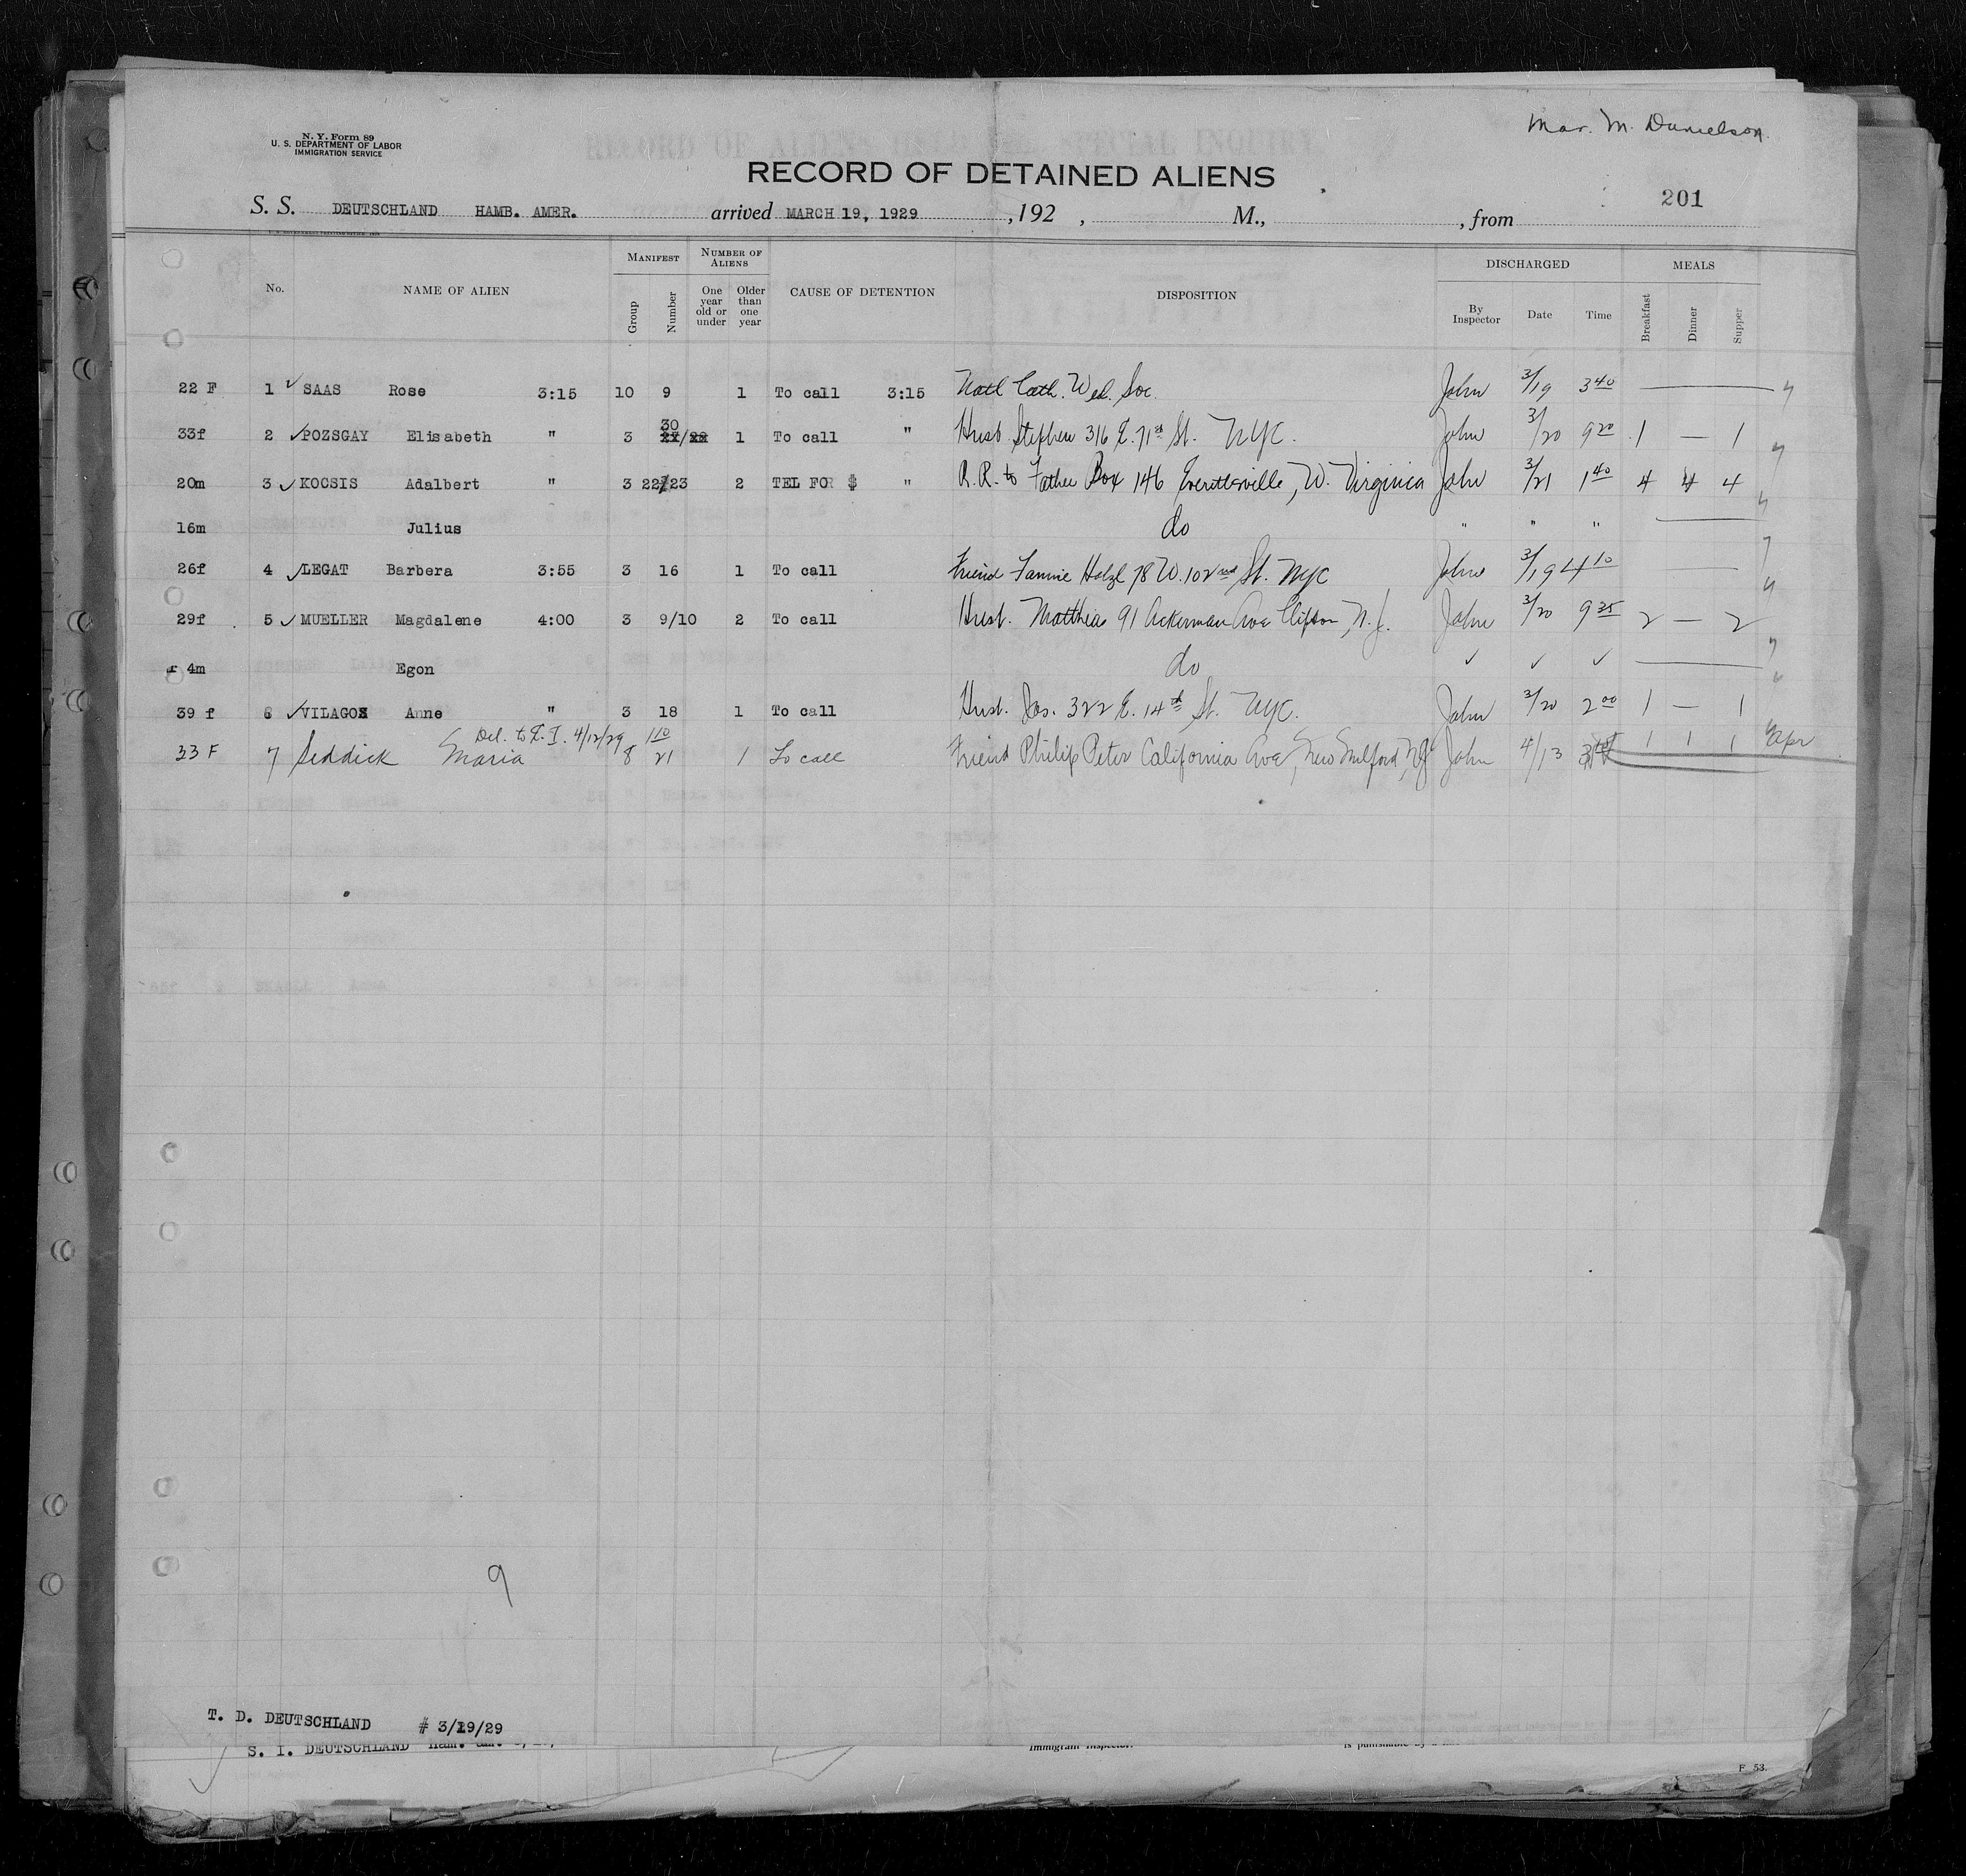 Mar. M. Danielson.
N. Y. Form 89
U. S. DEPARTMENT OF LABOR
IMMIGRATION SERVICE
RECORD OF DETAINED ALIENS
201
S. S. DEUTSCHLAND HAMB. AMER. arrived MARCH 19, 1929, 192 , M., , from
No. NAME OF ALIEN MANIFEST Group Number NUMBER OF ALIENS One year old or under Older than one year CAUSE OF DETENTION DISPOSITION DISCHARGED By Inspector Date Time MEALS Breakfast Dinner Supper
22 F 1 ✓ SAAS Rose 3:15 10 9 1 To call 3:15 Natl Cath. Wel. Soc. John 3/19 3 40 —
30
33f 2 ✓ POZSGAY Elisabeth " 3 1 To call " Husb. Stephen 316 E. 71st St. NYC. John 3/20 9 20 1 — 1
20m 3 ✓ KOCSIS Adalbert " 3 22/23 2 TEL FOR $ " R.R. to Father Box 146 Everettsville, W. Virginia John 3/21 1 40 4 4 4
16m Julius do " " " —
26f 4 ✓ LEGAT Barbera 3:55 3 16 1 To call Friend Fannie Holzl 78 W. 102nd St. NYC John 3/19 4 10 —
29f 5 ✓ MUELLER Magdalene 4:00 3 9/10 2 To call Husb. Matthias 91 Ackerman Ave Clifton, N.J. John 3/20 9 35 2 — 2
4m Egon do ✓ ✓ ✓ —
39 f 6 ✓ VILAGOS Anne " 3 18 1 To call Husb. Jos. 322 E. 14th St. NYC. John 3/20 2 00 1 — 1
Del. to E. I. 4/12/29 1 10
33 F 7 Seddick Maria 8 21 1 To call Friend Philip Peter California Ave, New Milford, NJ John 4/13 1 1 1 Apr
9
T. D. DEUTSCHLAND # 3/19/29
S. I. DEUTSCHLAND Ham. am.
Immigrant Inspector.
is punishable by a
F 53.